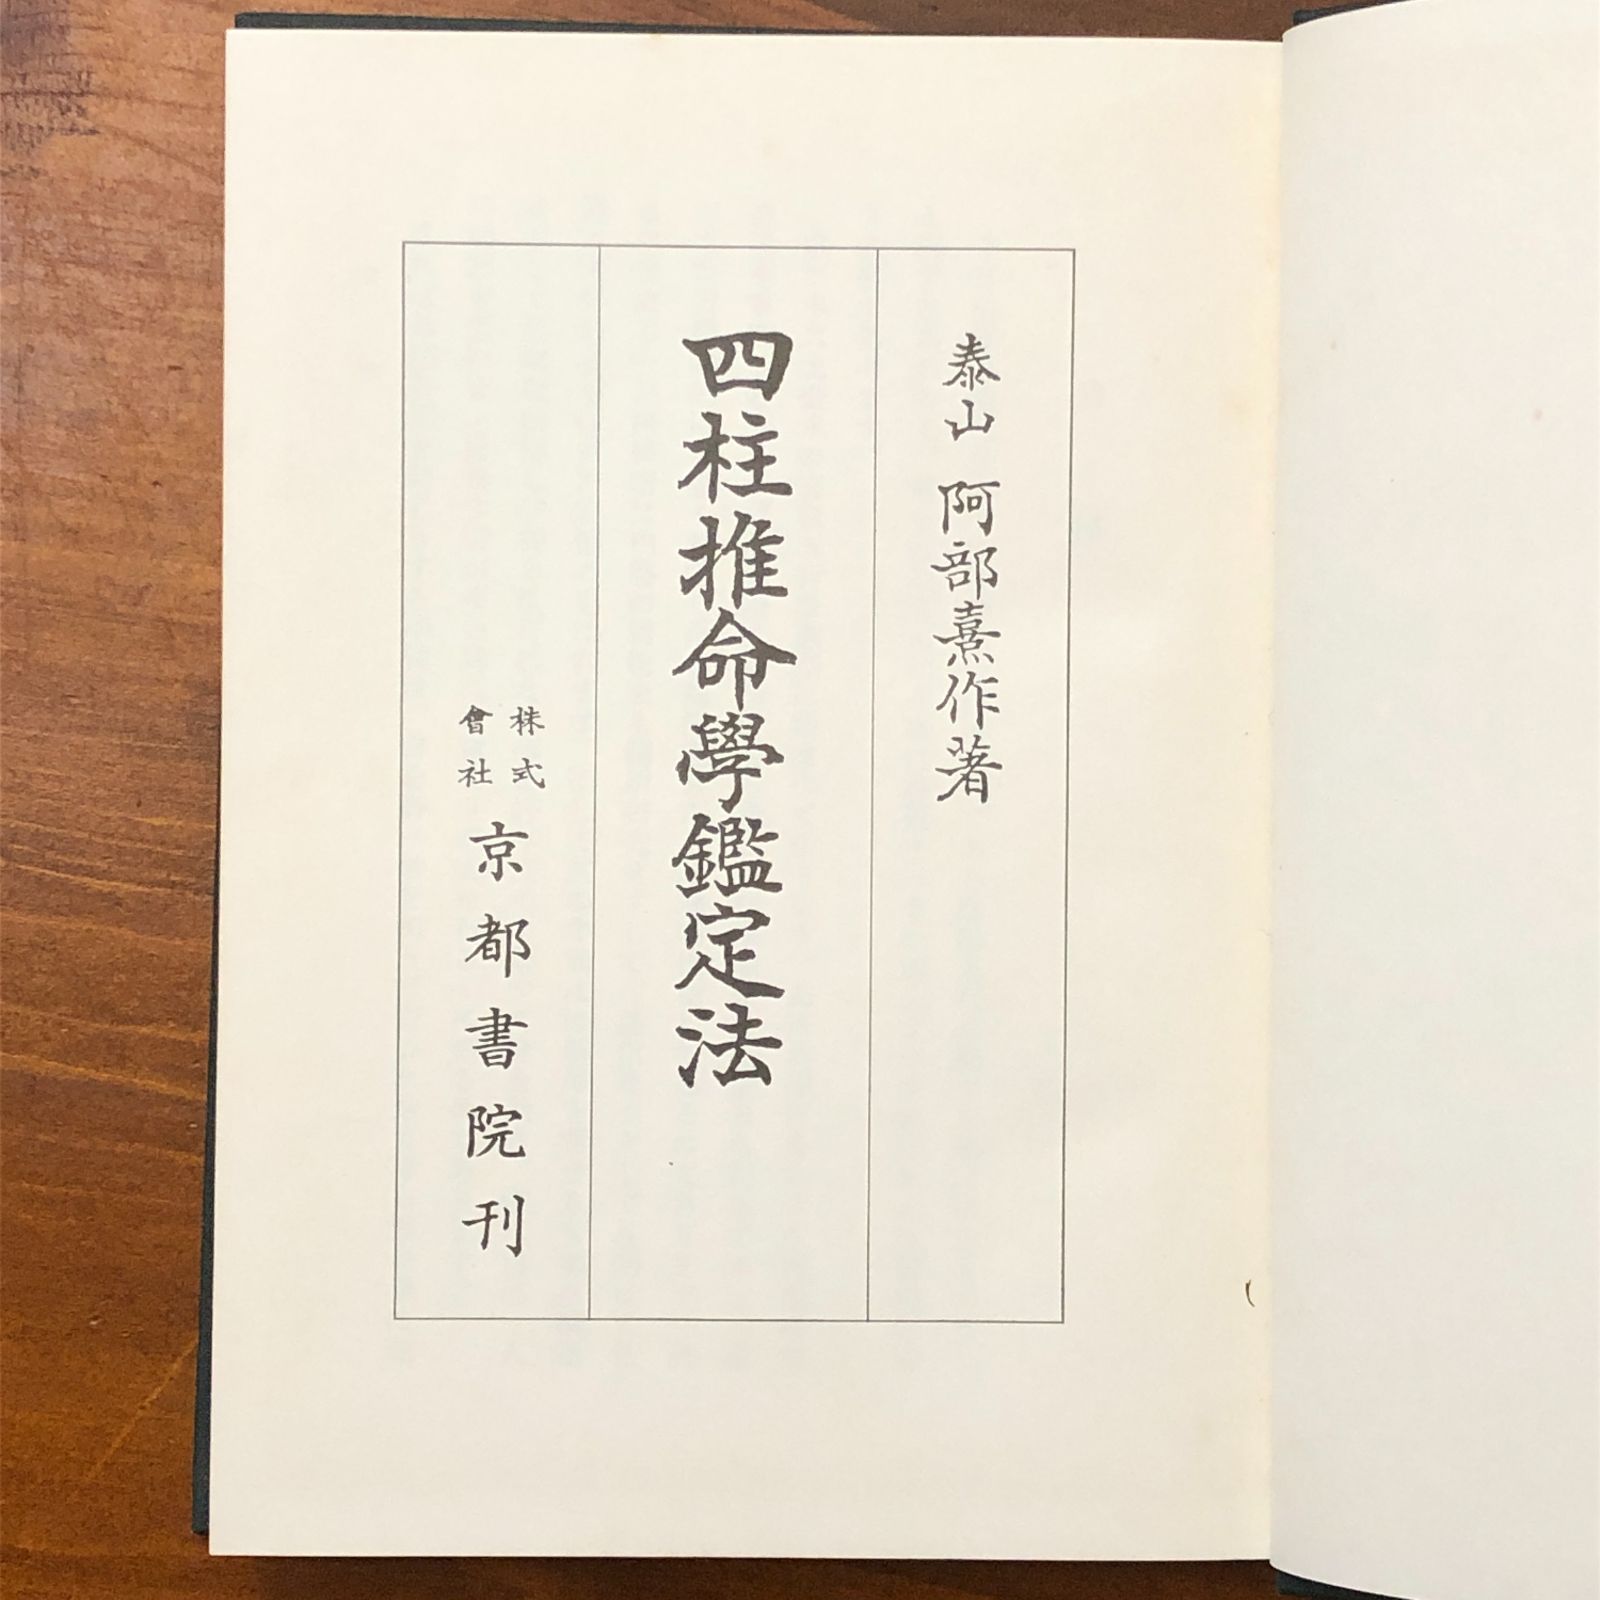 泰山 阿部熹作著
四柱推命學鑑定法
株式會社 京都書院刊